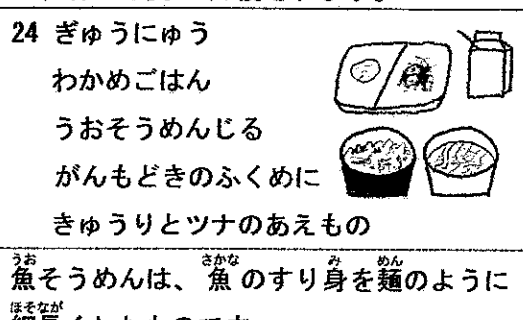 24 ぎゅうにゅう
わかめごはん
うおそうめんじる
がんもどきのふくめに
きゅうりとツナのあえもの
魚そうめんは、魚のすり身を麺のように